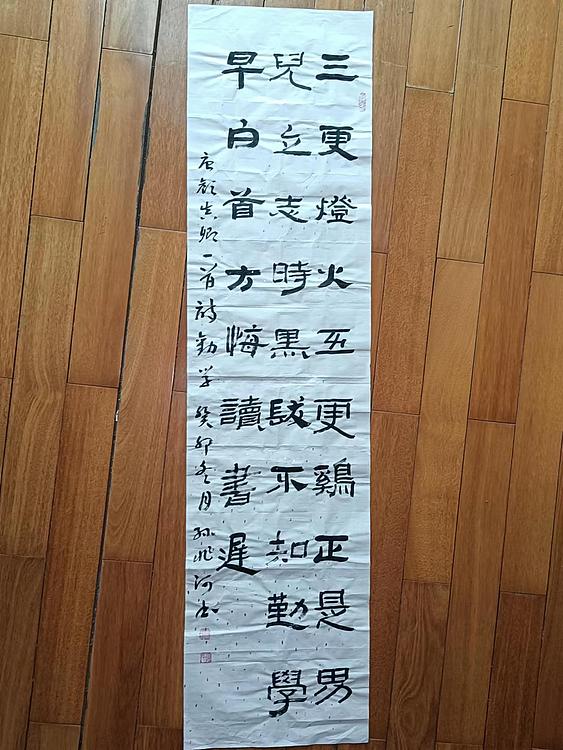 三更燈火五更鷄正是男
兒立志時黑髮不知勤學
早白首方悔讀書遲
唐顏真卿一首詩勸学 癸卯冬月 孙兆河书